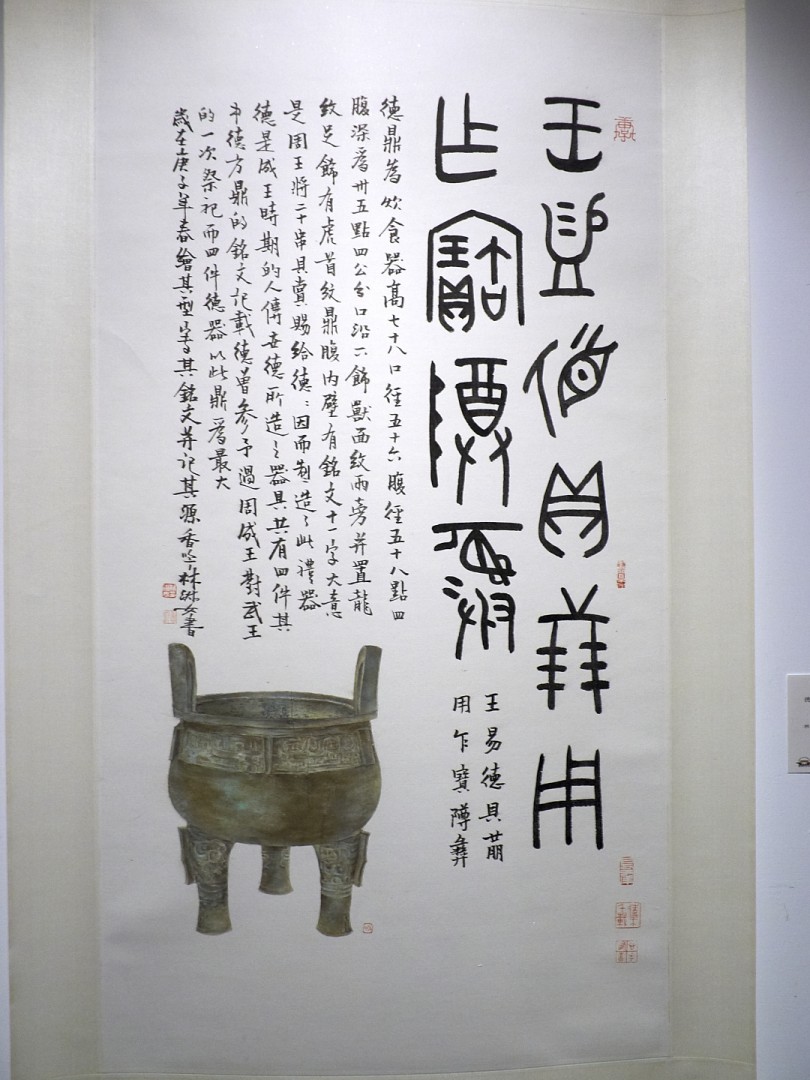 王易德貝廿朋用
乍寶尊彝
王易德貝廿朋
用乍寶墫彝
德鼎為飲食器高七十八口徑五十六腹徑五十八點四
腹深爲卅五點四公分口沿下飾獸面紋兩旁并置龍
紋足飾有虎首紋鼎腹内壁有銘文十一字大意
是周王將二十串貝賞賜給德〻因而制造了此禮器
德是成王時期的人傳世德所造之器具共有四件其
中德方鼎的銘文記載德曾參予過周成王對武王
的一次祭祀而四件德器以此鼎爲最大
歲在庚子年春繪其型書其銘文并記其源香吟林淑女書